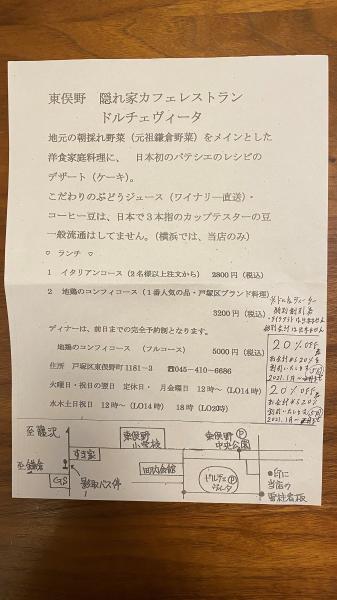 東俣野　隠れ家カフェレストラン
ドルチェヴィータ
地元の朝採れ野菜（元祖鎌倉野菜）をメインとした
洋食家庭料理に、　日本初のパテシエのレシピの
デザート（ケーキ）。
こだわりのぶどうジュース（ワイナリー直送）・
コーヒー豆は、日本で３本指のカップテスターの豆
一般流通はしてません。（横浜では、当店のみ）
○　ランチ　○
1　イタリアンコース（２名様以上注文から）　2800円（税込）
2　地鶏のコンフィコース（１番人気の品・戸塚区ブランド料理）
3200円（税込）
ディナーは、前日までの完全予約制となります。
地鶏のコンフィコース　（フルコース）　5000円（税込）
住所　戸塚区東俣野町1181－3　☎045-410-6686
火曜日・祝日の翌日　定休日・　月金曜日　12時～（LO14時）
水木土日祝日　12時～（LO14時）　18時（LO20時）
20％off
お会計より20％
割引いたします
2021.1月～
20％off
お会計より20％
割引いたします
2021.1月～
至藤沢
東俣野
小学校
東俣野
中央公園
P
すき家
至鎌倉
GS
影取バス停
町内会館
ドルチェ
ヴィータ
P
●印に
当店の
看板